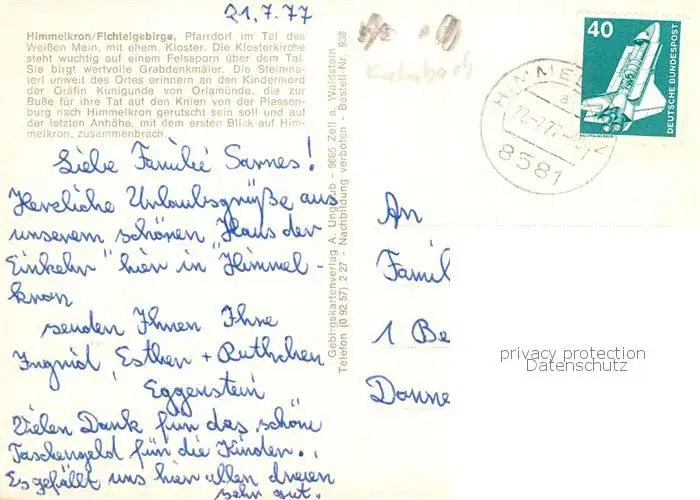 21.7.77
Himmelkron/Fichtelgebirge, Pfarrdorf im Tal des
Weißen Main, mit ehem. Kloster. Die Klosterkirche
steht wuchtig auf einem Felssporn über dem Tal.
Sie birgt wertvolle Grabdenkmäler. Die Steinna-
terl unweit des Ortes erinnern an den Kindermord
der Gräfin Kunigunde von Orlamünde, die zur
Buße für ihre Tat auf den Knien von der Plassen-
burg nach Himmelkron gerutscht sein soll und auf
der letzten Anhöhe, mit dem ersten Blick auf Him-
melkron, zusammenbrach.
Liebe Familie Sarnes!
Herzliche Urlaubsgrüße aus
unserem schönen "Haus der
Einkehr" hier in "Himmel-
kron
senden Ihnen Ihre
Ingrid, Esther + Ruthchen
Eggenstein
Vielen Dank für das schöne
Taschengeld für die Kinder..
Es gefällt uns hier allen dreien
sehr gut.
Gebirgskartenverlag A. Unglaub - 8665 Zell a. Waldstein
Telefon (0 92 57) 2 27 - Nachbildung verboten - Bestell-Nr. 938
40
DEUTSCHE BUNDESPOST
WELTRAUMLABOR
HIMMEL
22.-7.77
8581
An
Famil
1 Be
Donne
privacy protection
Datenschutz